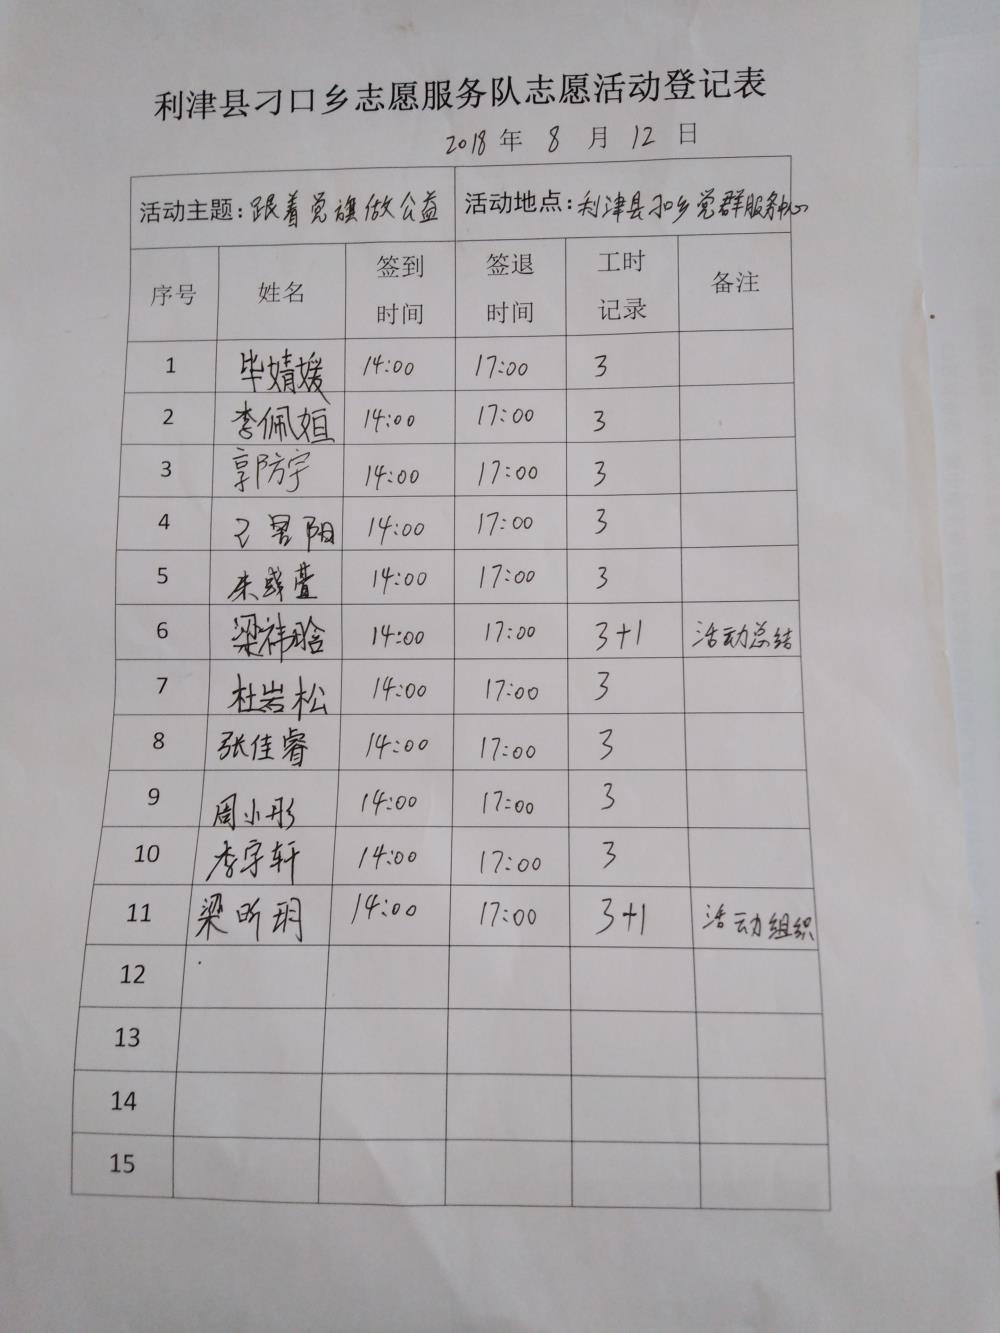 利津县刁口乡志愿服务队志愿活动登记表
2018 年 8 月 12 日
活动主题：跟着党旗做公益 活动地点：利津县刁口乡党群服务中心
序号 姓名 签到时间 签退时间 工时记录 备注
1 毕婧媛 14:00 17:00 3
2 李佩姮 14:00 17:00 3
3 郭防宇 14:00 17:00 3
4 14:00 17:00 3
5 14:00 17:00 3
6 梁祎晗 14:00 17:00 3+1 活动总结
7 杜岩松 14:00 17:00 3
8 张佳睿 14:00 17:00 3
9 周小彤 14:00 17:00 3
10 李宇轩 14:00 17:00 3
11 梁昕玥 14:00 17:00 3+1 活动组织
12
13
14
15